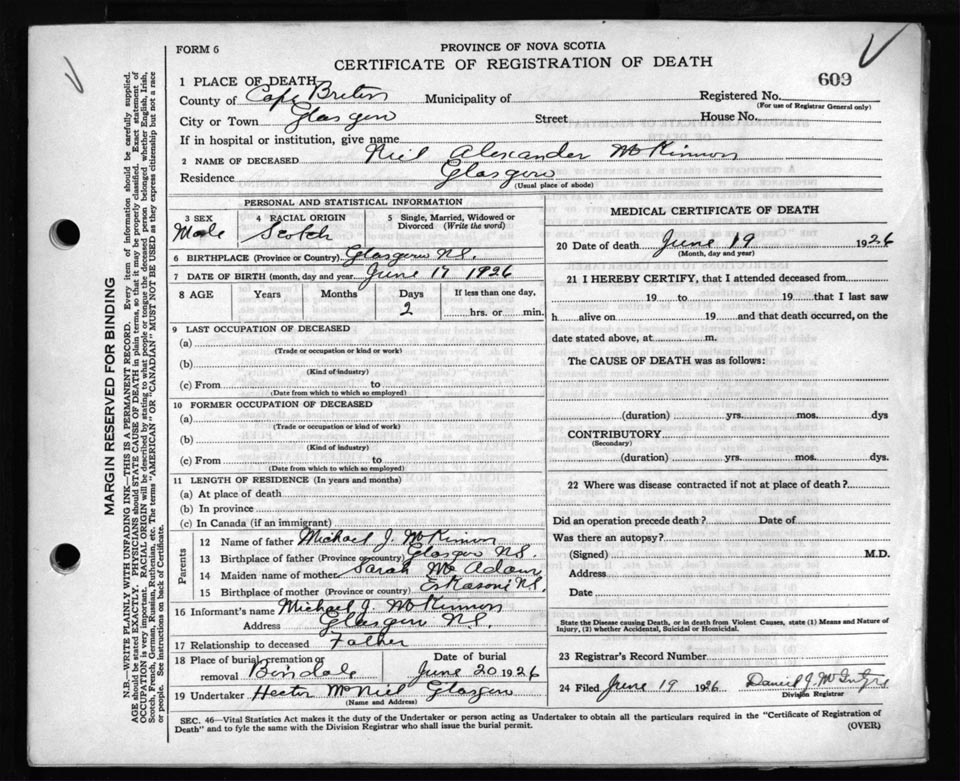 FORM 6
PROVINCE OF NOVA SCOTIA
CERTIFICATE OF REGISTRATION OF DEATH
609
1 PLACE OF DEATH
County of Cape Breton Municipality of Registered No.
(For use of Registrar General only)
City or Town Glasgow Street House No.
If in hospital or institution, give name
2 NAME OF DECEASED Niel Alexander McKinnon
Residence Glasgow
(Usual place of abode)
PERSONAL AND STATISTICAL INFORMATION
3 SEX 4 RACIAL ORIGIN 5 Single, Married, Widowed or Divorced (Write the word)
Male Scotch
6 BIRTHPLACE (Province or Country) Glasgow N.S.
7 DATE OF BIRTH (month, day and year) June 17 1926
8 AGE Years Months Days If less than one day,
2 hrs. or min.
9 LAST OCCUPATION OF DECEASED
(a)
(Trade or occupation or kind or work)
(b)
(Kind of industry)
(c) From to
(Date from which to which so employed)
10 FORMER OCCUPATION OF DECEASED
(a)
(Trade or occupation or kind of work)
(b)
(Kind of industry)
(c) From to
(Date from which to which so employed)
11 LENGTH OF RESIDENCE (In years and months)
(a) At place of death
(b) In province
(c) In Canada (if an immigrant)
Parents
12 Name of father Michael J. McKinnon
13 Birthplace of father (Province or country) Glasgow N.S.
14 Maiden name of mother Sarah McAdam
15 Birthplace of mother (Province or country) Eskasoni N.S.
16 Informant's name Michael J. McKinnon
Address Glasgow N.S.
17 Relationship to deceased Father
18 Place of burial, cremation or removal Date of burial
June 20 1926
19 Undertaker Hector McNiel Glasgow
(Name and Address)
MEDICAL CERTIFICATE OF DEATH
20 Date of death June 19 1926
(Month, day and year)
21 I HEREBY CERTIFY, that I attended deceased from
19 to 19 that I last saw
h alive on 19 and that death occurred, on the
date stated above, at m.
The CAUSE OF DEATH was as follows:
(duration) yrs. mos. dys
CONTRIBUTORY
(Secondary)
(duration) yrs. mos. dys.
22 Where was disease contracted if not at place of death?
Did an operation precede death? Date of
Was there an autopsy?
(Signed) M.D.
Address
Date
State the Disease causing Death, or in death from Violent Causes, state (1) Means and Nature of
Injury, (2) whether Accidental, Suicidal or Homicidal.
23 Registrar's Record Number
24 Filed June 19 1926 Daniel J.
Division Registrar
SEC. 46—Vital Statistics Act makes it the duty of the Undertaker or person acting as Undertaker to obtain all the particulars required in the "Certificate of Registration of
Death" and to fyle the same with the Division Registrar who shall issue the burial permit.
(OVER)
MARGIN RESERVED FOR BINDING
N.B.—WRITE PLAINLY WITH UNFADING INK—THIS IS A PERMANENT RECORD. Every item of information should be carefully supplied.
AGE should be stated EXACTLY. PHYSICIANS should STATE CAUSE OF DEATH in plain terms, so that it may be properly classified. Exact statement of
OCCUPATION is very important. RACIAL ORIGIN will be described by stating to what people or tongue the deceased person belonged whether English, Irish,
Scotch, French, German, Russian, Ruthenian, etc. The terms "AMERICAN" OR "CANADIAN" MUST NOT BE USED as they express citizenship but not a race
or people. See instructions on back of Certificate.